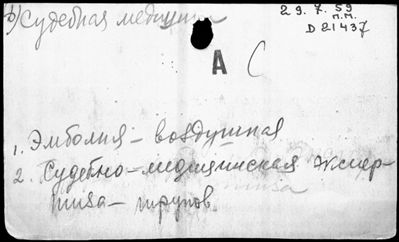 б) Судебная медицина
29.7.59
п.м.
D 21437
А С
1. Эмболия – воздушная
2. Судебно-медицинская экспер-
тиза – трупов.